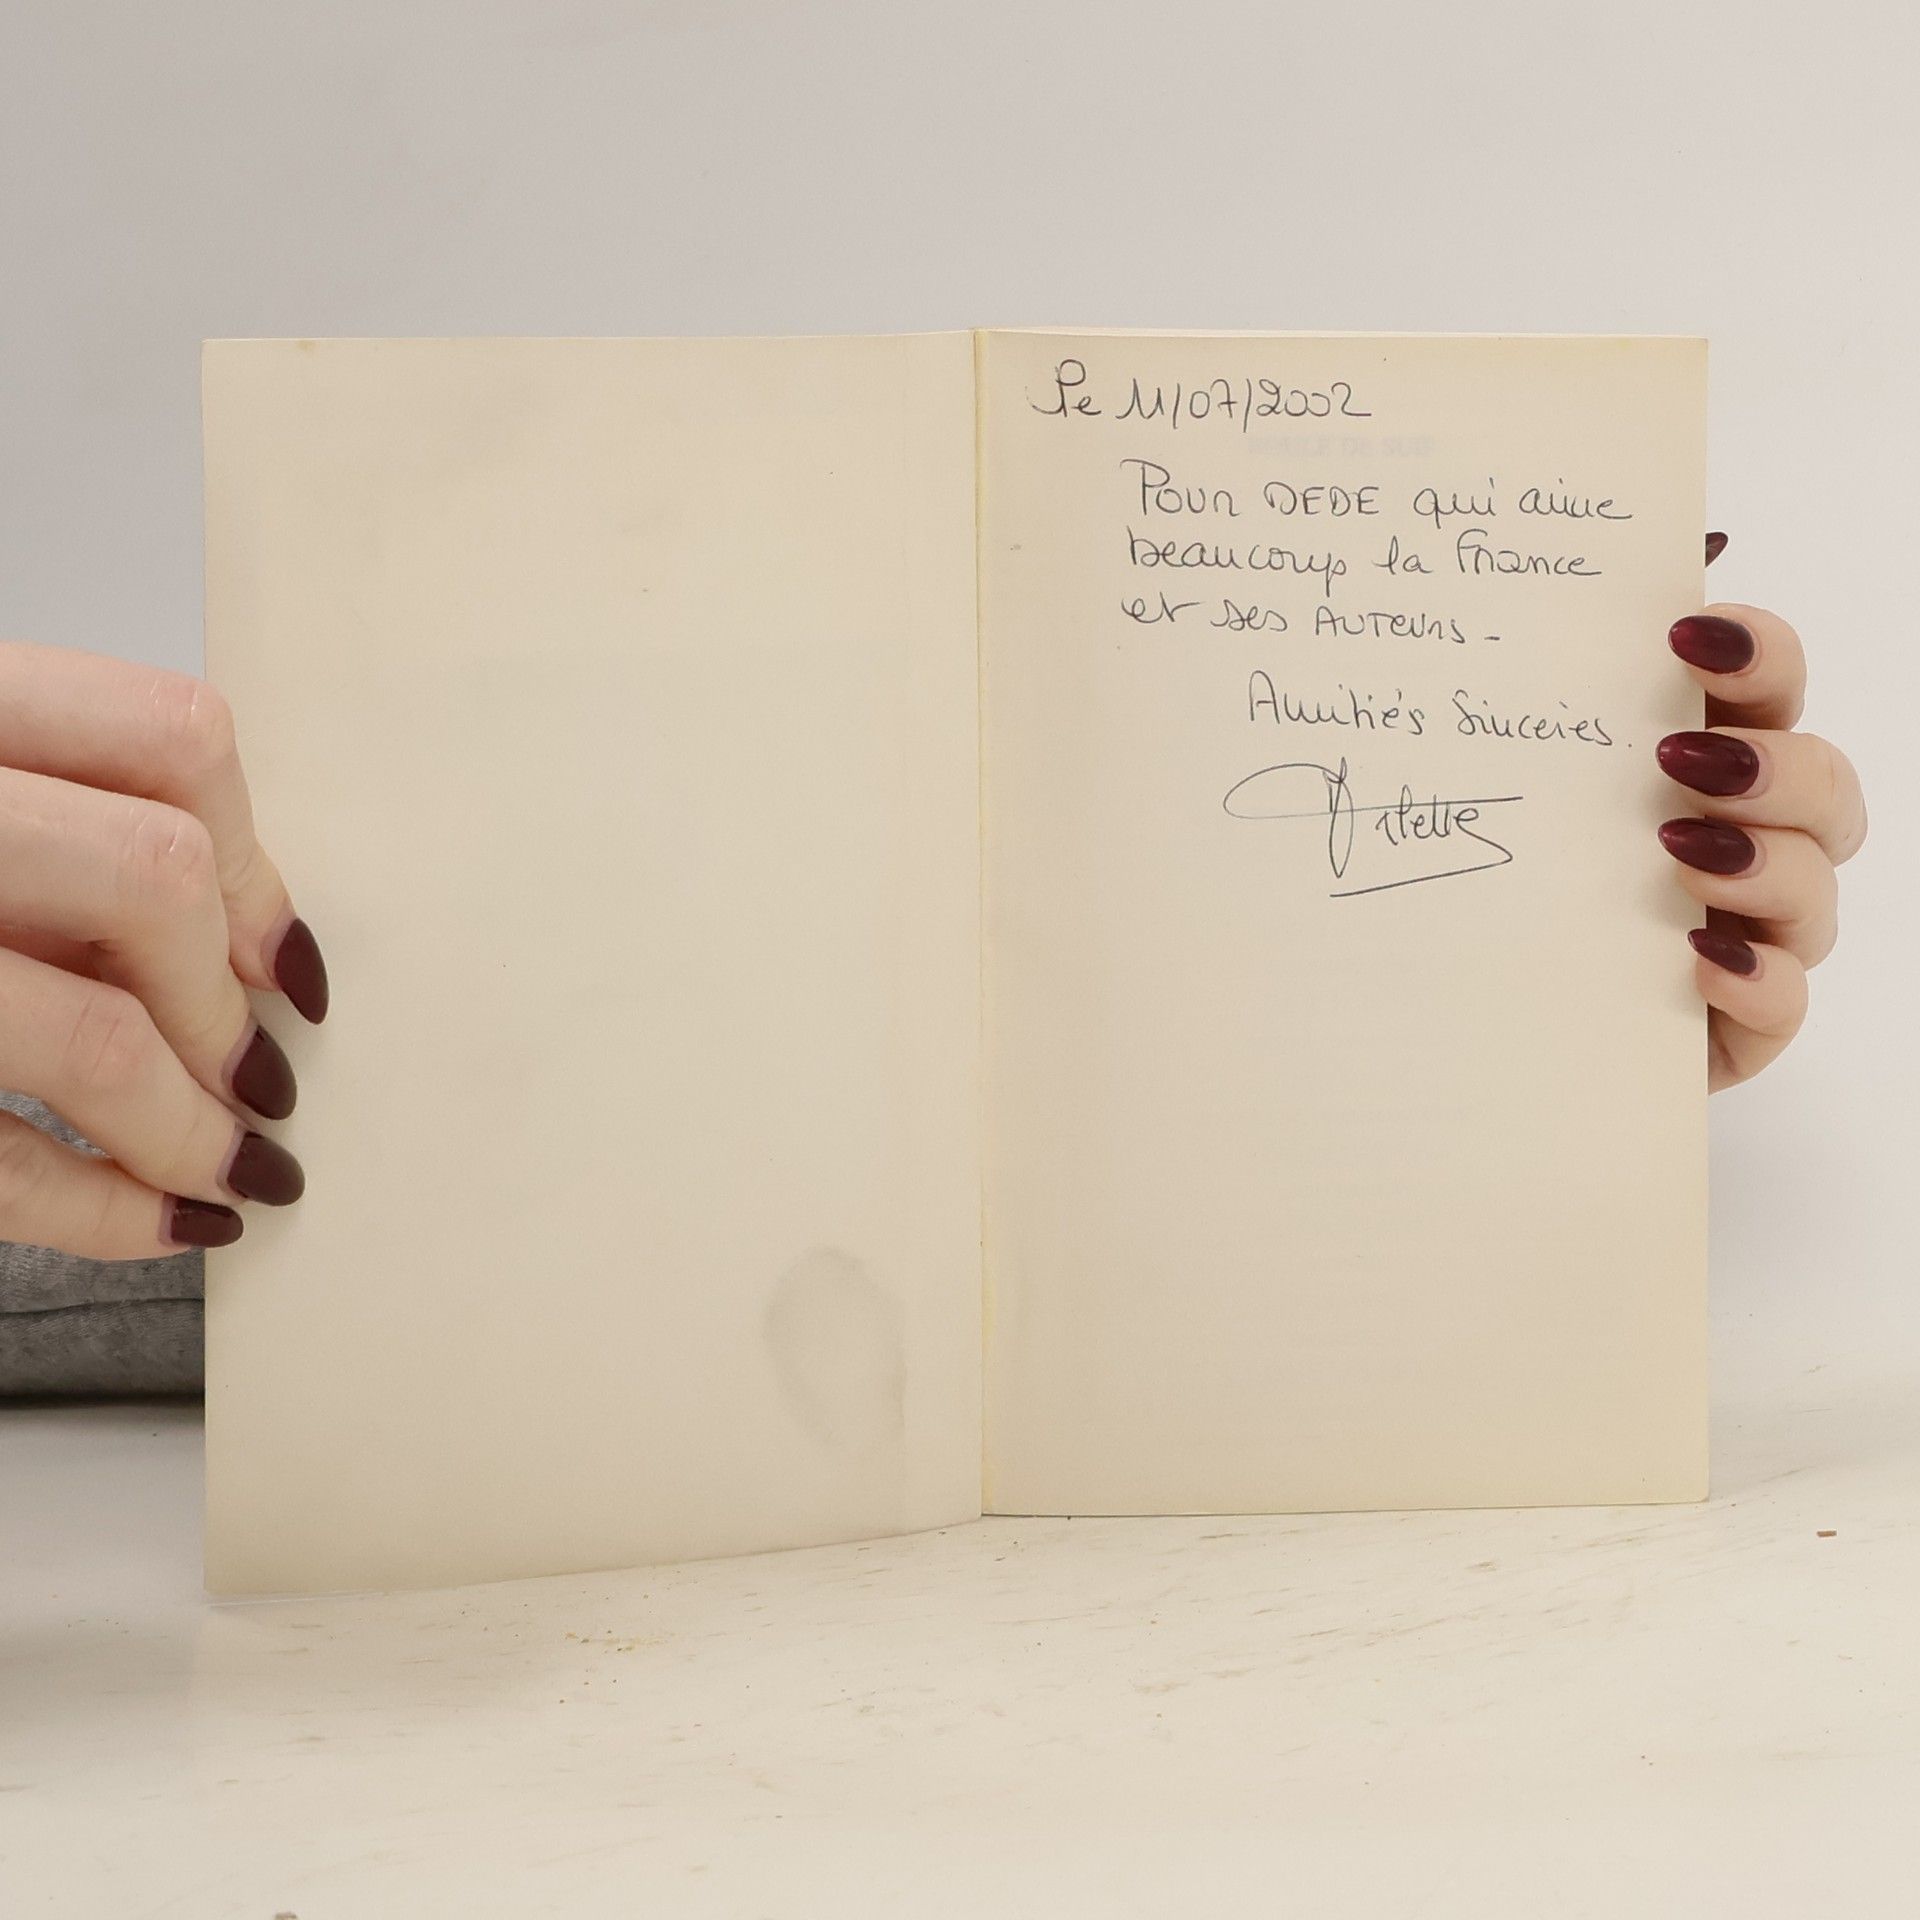 Le 11/07/2002
BOULE DE SUIF
Pour DEDE qui aime
beaucoup la France
et ses AUTEURS -
Amitiés Sincères.
Arlette